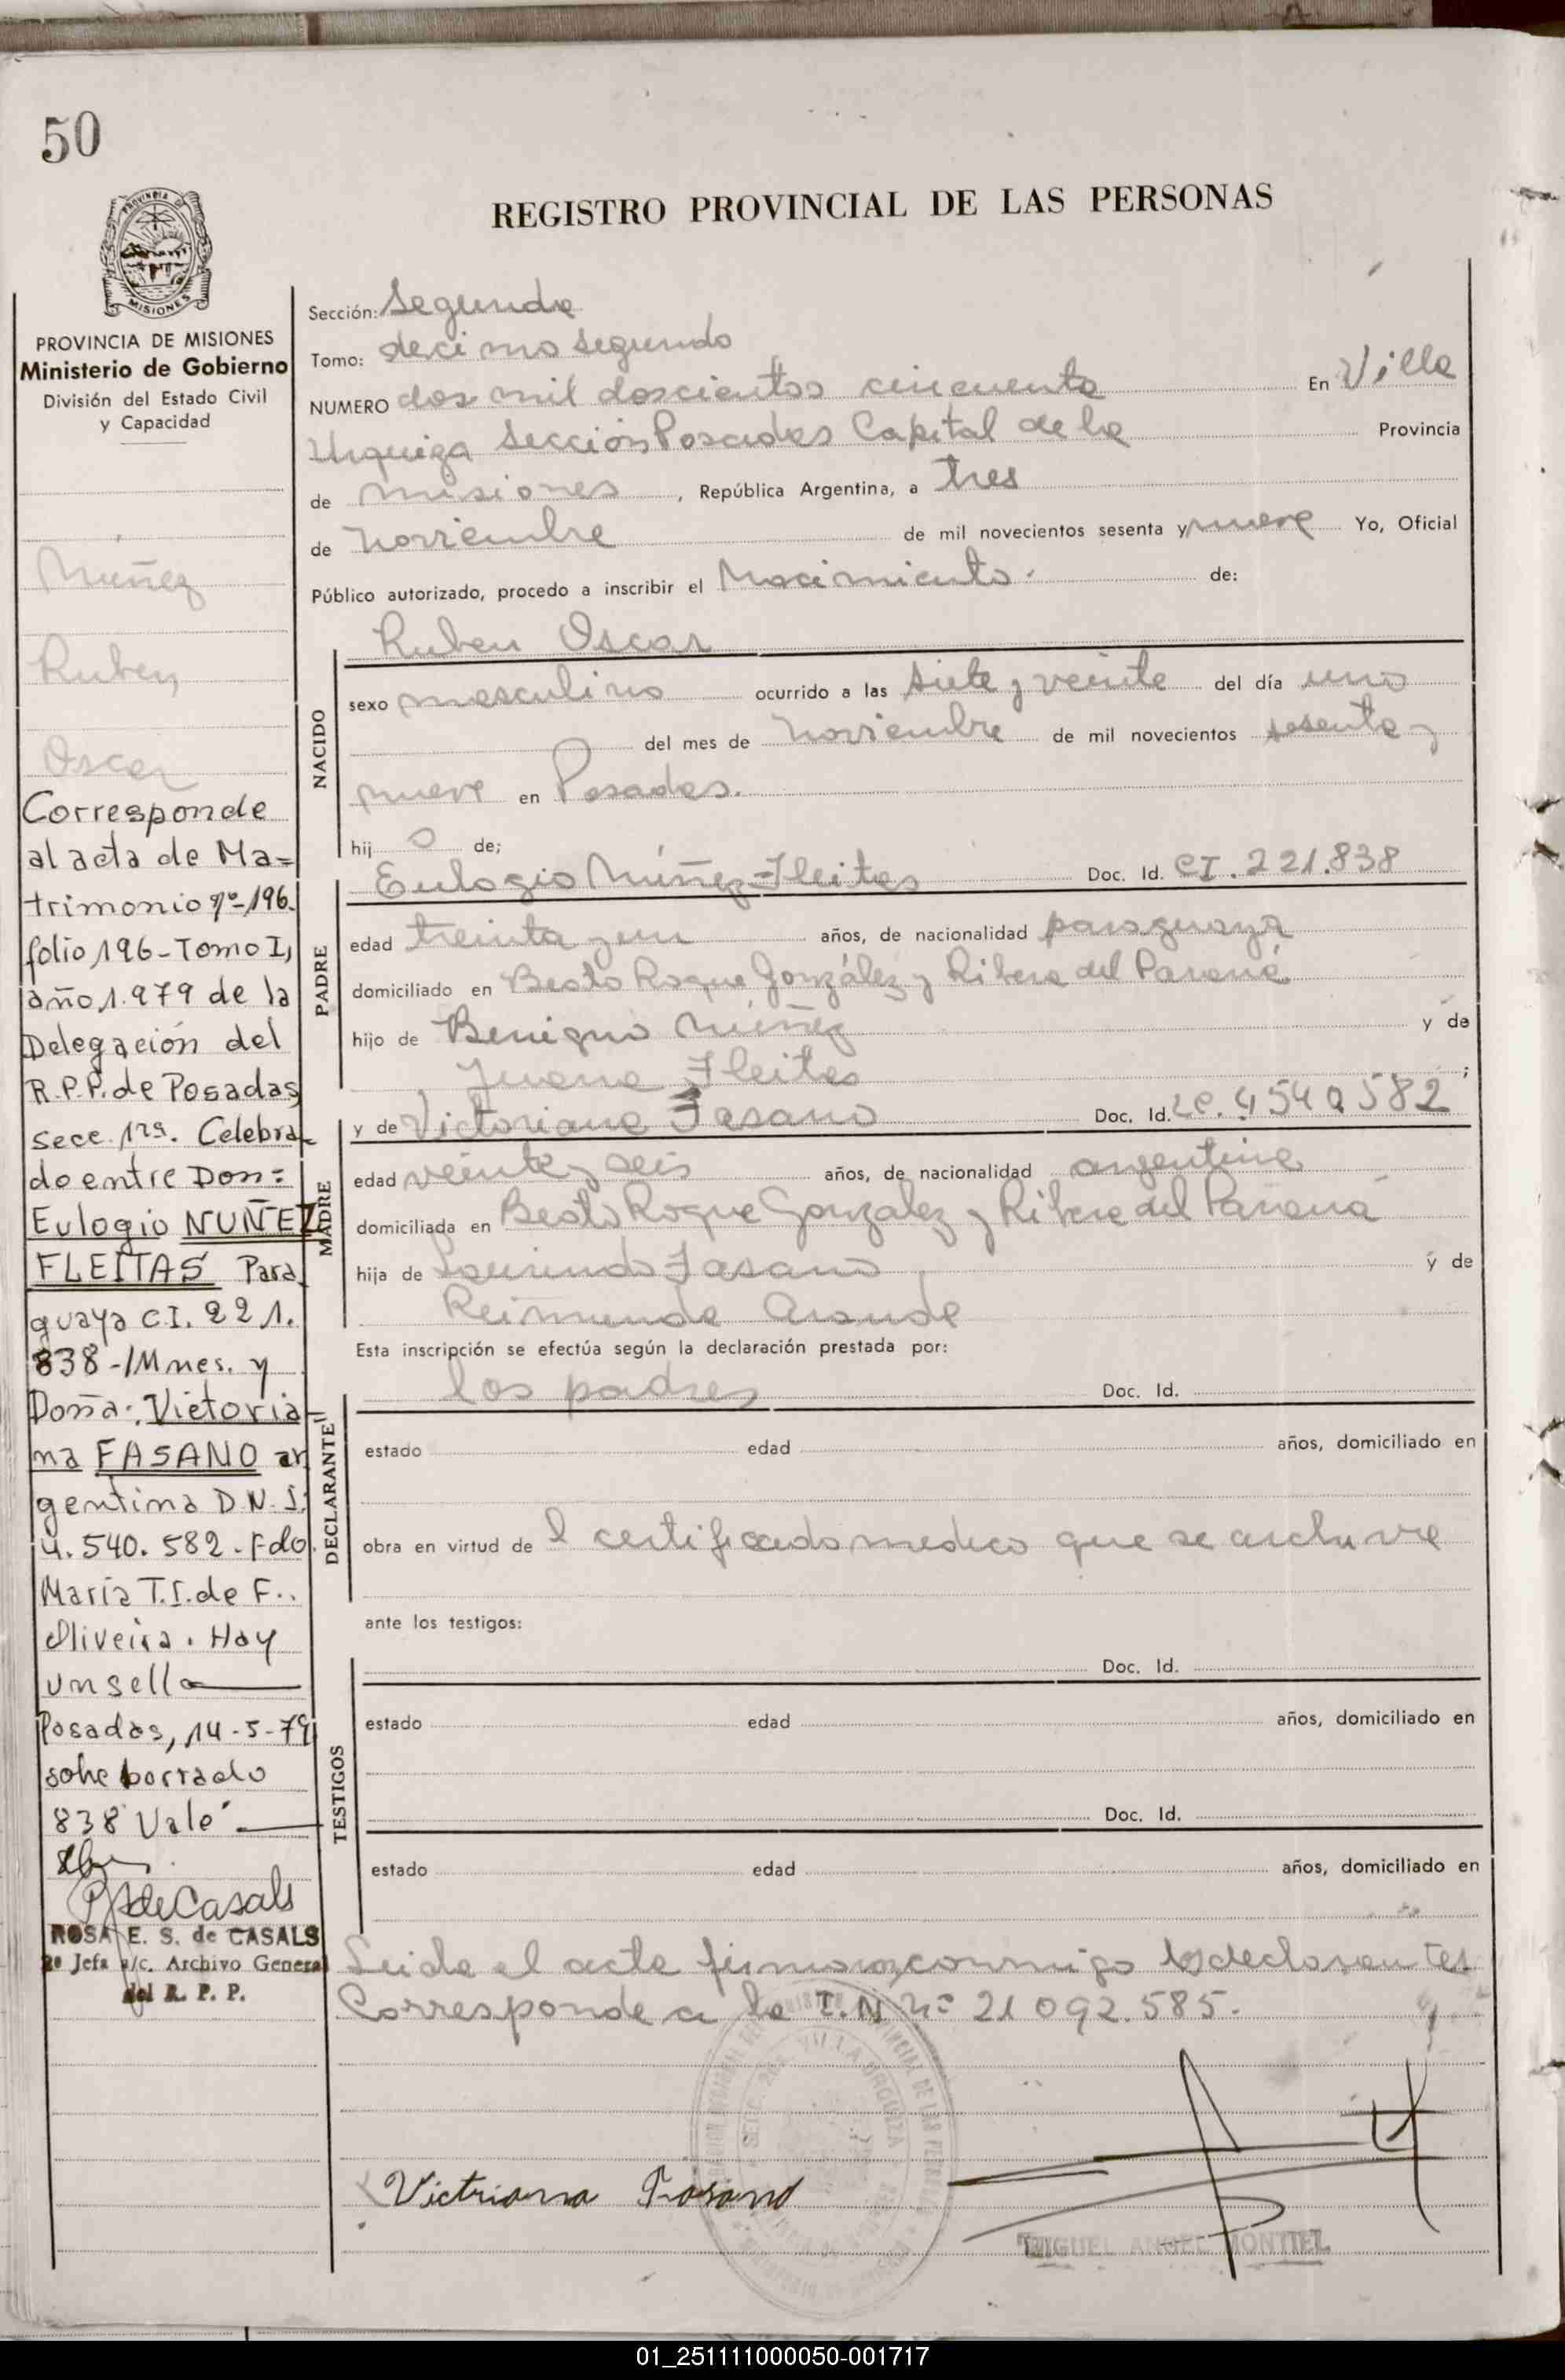 50
PROVINCIA DE MISIONES
Ministerio de Gobierno
División del Estado Civil
y Capacidad
Núñez
Ruben
Oscar
Corresponde
al acta de Ma=
trimonio nº 196.
folio 196 - Tomo I,
año 1.979 de la
Delegación del
R.P.P. de Posadas
secc. 1ra. Celebra
do entre Don:
Eulogio NUÑEZ
FLEITAS Para
guaya C.I. 221.
838-/Mnes. y
Doña: Victoria
na FASANO ar
gentina D.N.I.
4.540.582. Fdo.
María T.I. de F..
Oliveira. Hay
un sello
Posadas, 14-5-79
sobre borrado
838 Vale
ROSA E. S. de CASALS
2º Jefa a/c. Archivo General
del R. P. P.
REGISTRO PROVINCIAL DE LAS PERSONAS
Sección: Segunda
Tomo: decimo segundo
NUMERO dos mil doscientos cincuenta En Villa
Urquiza Sección Posadas Capital de la Provincia
de Misiones, República Argentina, a tres
de noviembre de mil novecientos sesenta y nueve Yo, Oficial
Público autorizado, procedo a inscribir el Nacimiento. de:
Ruben Oscar
NACIDO
sexo masculino ocurrido a las siete y veinte del día uno
del mes de noviembre de mil novecientos sesenta y
nueve en Posadas.
hij o de;
PADRE
Eulogio Núñez-Fleitas Doc. Id. CI. 221.838
edad treinta y un años, de nacionalidad paraguaya
domiciliado en Beato Roque González y Ribera del Paraná
hijo de Benigno Núñez y de
Juana Fleitas ;
y de Victoriana Fasano Doc. Id. LC. 4540582
MADRE
edad veinte y seis años, de nacionalidad argentina
domiciliada en Beato Roque Gonzalez y Ribera del Paraná
hija de Fasano y de
Reimunda
Esta inscripción se efectúa según la declaración prestada por:
los padres Doc. Id.
DECLARANTE
estado edad años, domiciliado en
obra en virtud de l certificado medico que se archive
ante los testigos:
Doc. Id.
TESTIGOS
estado edad años, domiciliado en
Doc. Id.
estado edad años, domiciliado en
Leida el acta firman conmigo los declarantes
Corresponde a la I.N nº 21 092.585.
Victriana Fasano
MIGUEL ANGEL MONTIEL
01_251111000050-001717